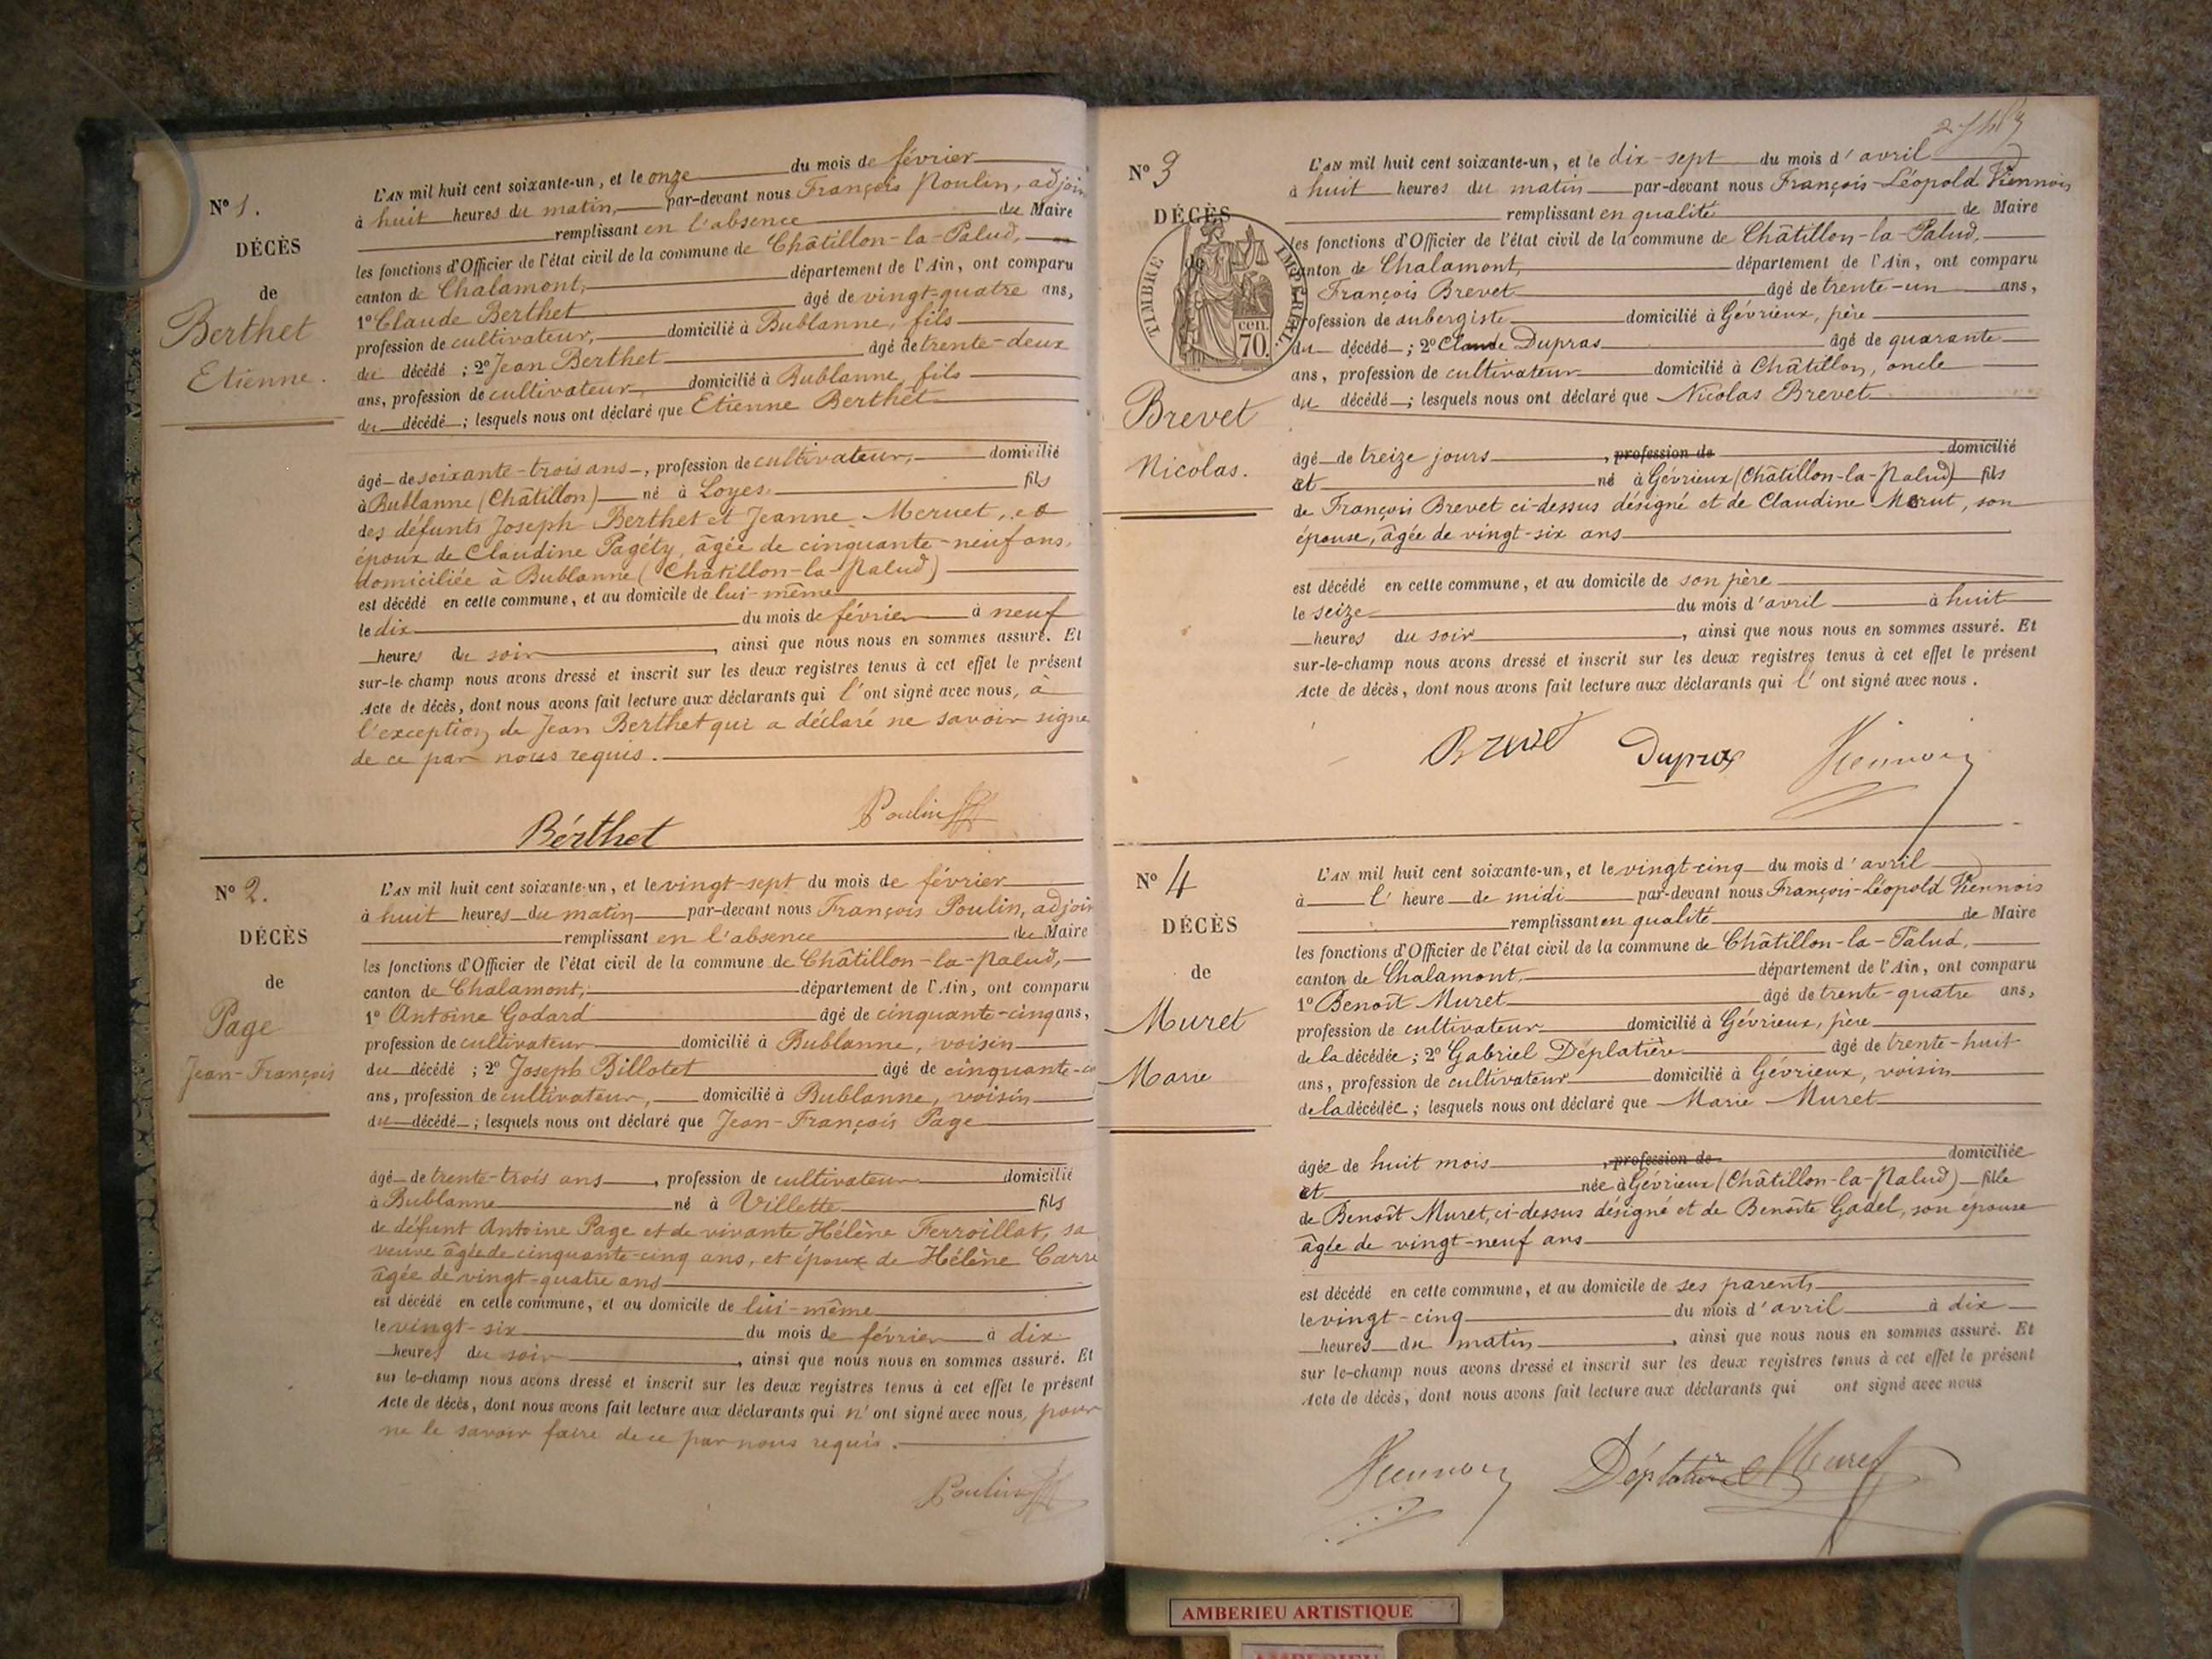 Nº 1.
DÉCÈS
de
Berthet
Etienne.
L'AN mil huit cent soixante-un, et le onze du mois de février
à huit heures du matin, par-devant nous François Poulin, adjoin
remplissant en l'absence du Maire
les fonctions d'Officier de l'état civil de la commune de Châtillon-la-Palud,
canton de Chalamont, département de l'Ain, ont comparu
1º Claude Berthet âgé de vingt-quatre ans,
profession de cultivateur, domicilié à Bublanne, fils
du décédé ; 2º Jean Berthet âgé de trente-deux
ans, profession de cultivateur domicilié à Bublanne, fils
du décédé ; lesquels nous ont déclaré que Etienne Berthet
âgé de soixante-trois ans, profession de cultivateur, domicilié
à Bublanne (Châtillon) né à Loyes, fils
des défunts Joseph Berthet et Jeanne Meruet, et
époux de Claudine Pagéty, âgée de cinquante-neuf ans,
domiciliée à Bublanne (Châtillon-la-Palud)
est décédé en cette commune, et au domicile de lui-même
le dix du mois de février à neuf
heures du soir, ainsi que nous nous en sommes assuré. Et
sur-le-champ nous avons dressé et inscrit sur les deux registres tenus à cet effet le présent
Acte de décès, dont nous avons fait lecture aux déclarants qui l'ont signé avec nous, à
l'exception de Jean Berthet qui a déclaré ne savoir signe
de ce par nous requis.
Bérthet Poulin
Nº 2.
DÉCÈS
de
Page
Jean-François
L'AN mil huit cent soixante-un, et le vingt-sept du mois de février
à huit heures du matin par-devant nous François Poulin, adjoin
remplissant en l'absence du Maire
les fonctions d'Officier de l'état civil de la commune de Châtillon-la-Palud,
canton de Chalamont, département de l'Ain, ont comparu
1º Antoine Godard âgé de cinquante-cinq ans,
profession de cultivateur domicilié à Bublanne, voisin
du décédé ; 2º Joseph Billotet âgé de cinquante-
ans, profession de cultivateur, domicilié à Bublanne, voisin
du décédé ; lesquels nous ont déclaré que Jean-François Page
âgé de trente-trois ans, profession de cultivateur domicilié
à Bublanne né à Villette fils
de défunt Antoine Page et de vivante Hélène Ferroillat, sa
veuve âgée de cinquante-cinq ans, et époux de Hélène Carre
âgée de vingt-quatre ans
est décédé en cette commune, et au domicile de lui-même
le vingt-six du mois de février à dix
heures du soir, ainsi que nous nous en sommes assuré. Et
sur-le-champ nous avons dressé et inscrit sur les deux registres tenus à cet effet le présent
Acte de décès, dont nous avons fait lecture aux déclarants qui n'ont signé avec nous, pour
ne le savoir faire de ce par nous requis.
Poulin
Nº 3
DÉCÈS
de
TIMBRE IMPÉRIAL
70 cen.
Brevet
Nicolas.
L'AN mil huit cent soixante-un, et le dix-sept du mois d'avril
à huit heures du matin par-devant nous François-Léopold Viennois
remplissant en qualité de Maire
les fonctions d'Officier de l'état civil de la commune de Châtillon-la-Palud,
canton de Chalamont, département de l'Ain, ont comparu
François Brevet âgé de trente-un ans,
profession de aubergiste domicilié à Gévrieux, père
du décédé ; 2º Claude Dupras âgé de quarante
ans, profession de cultivateur domicilié à Châtillon, oncle
du décédé ; lesquels nous ont déclaré que Nicolas Brevet
âgé de treize jours, profession de domicilié
et né à Gévrieux (Châtillon-la-Palud) fils
de François Brevet ci-dessus désigné et de Claudine Morut, son
épouse, âgée de vingt-six ans
est décédé en cette commune, et au domicile de son père
le seize du mois d'avril à huit
heures du soir, ainsi que nous nous en sommes assuré. Et
sur-le-champ nous avons dressé et inscrit sur les deux registres tenus à cet effet le présent
Acte de décès, dont nous avons fait lecture aux déclarants qui l'ont signé avec nous.
Brevet Dupras Viennois
Nº 4
DÉCÈS
de
Muret
Marie
L'AN mil huit cent soixante-un, et le vingt-cinq du mois d'avril
à l'heure de midi par-devant nous François-Léopold Viennois
remplissant en qualité de Maire
les fonctions d'Officier de l'état civil de la commune de Châtillon-la-Palud,
canton de Chalamont, département de l'Ain, ont comparu
1º Benoît Muret âgé de trente-quatre ans,
profession de cultivateur domicilié à Gévrieux, père
de la décédée ; 2º Gabriel Déplatière âgé de trente-huit
ans, profession de cultivateur domicilié à Gévrieux, voisin
de la décédée ; lesquels nous ont déclaré que Marie Muret
âgée de huit mois, profession de domiciliée
et née à Gévrieux (Châtillon-la-Palud) fille
de Benoît Muret, ci-dessus désigné et de Benoîte Gadel, son épouse
âgée de vingt-neuf ans
est décédé en cette commune, et au domicile de ses parents
le vingt-cinq du mois d'avril à dix
heures du matin, ainsi que nous nous en sommes assuré. Et
sur le-champ nous avons dressé et inscrit sur les deux registres tenus à cet effet le présent
Acte de décès, dont nous avons fait lecture aux déclarants qui ont signé avec nous
Viennois Déplatière Muret
AMBERIEU ARTISTIQUE
AMBERIEU